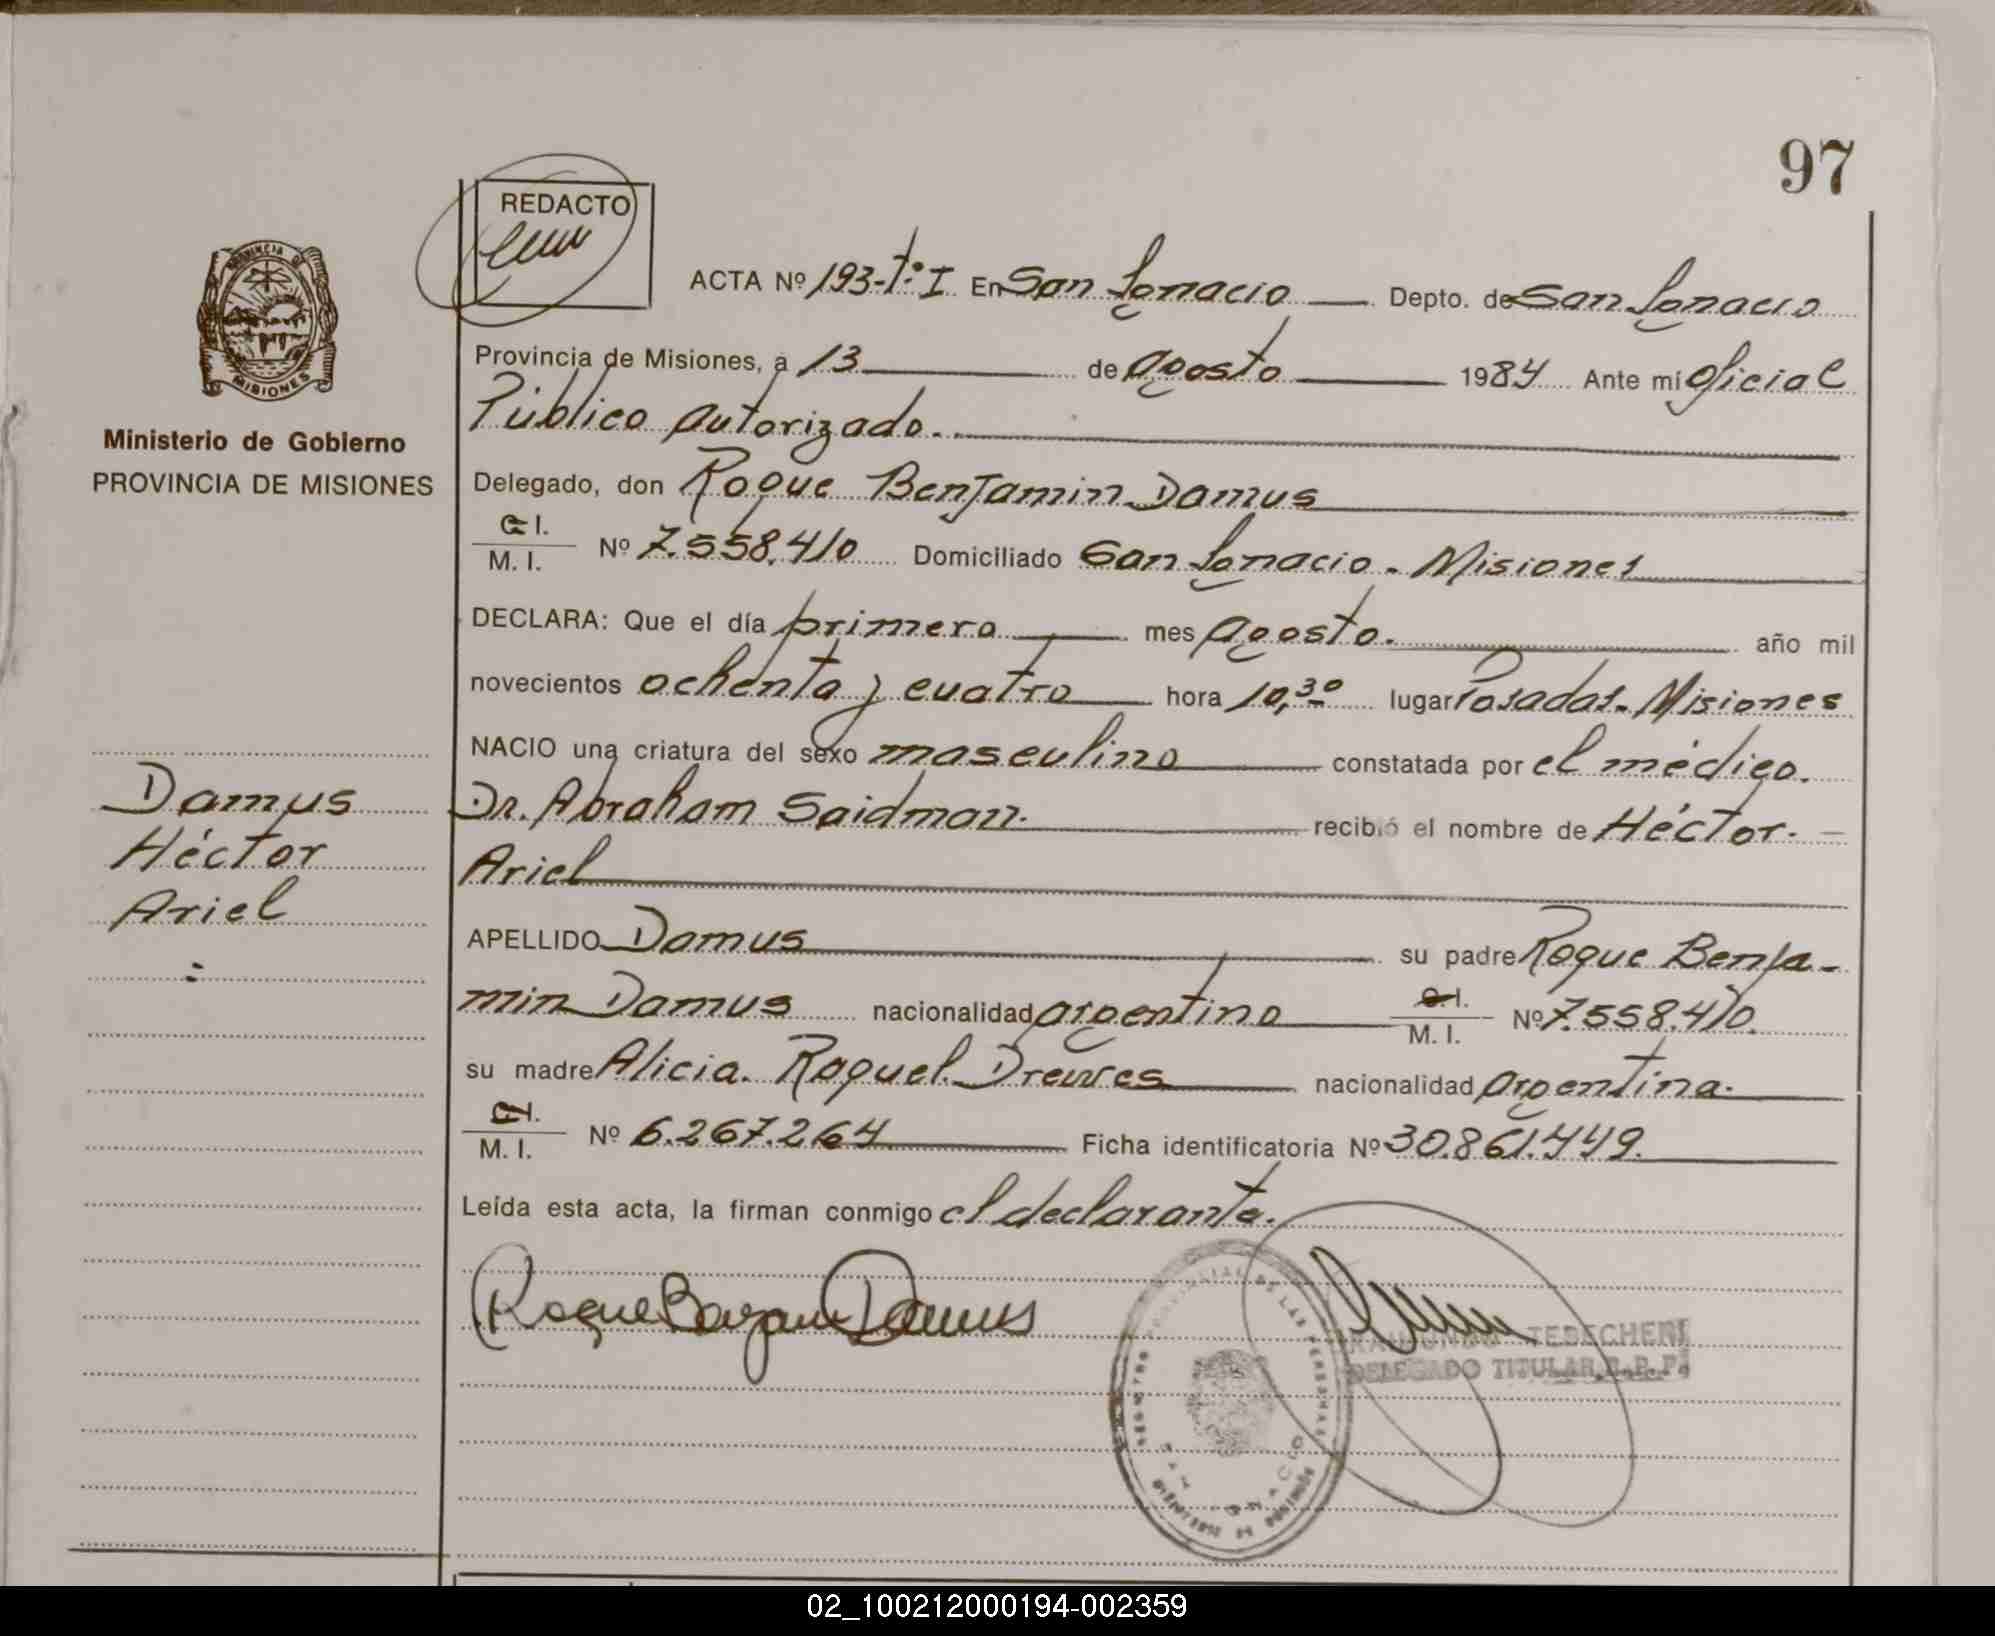 97
REDACTO
ACTA Nº 193-tº I En San Ignacio Depto. de San Ignacio
Provincia de Misiones, a 13 de agosto 1984 Ante mi oficial
Público autorizado.
Delegado, don Roque Benjamin Damus
C.I. M. I. Nº 7.558.410 Domiciliado San Ignacio - Misiones
DECLARA: Que el día primero mes agosto. año mil
novecientos ochenta y cuatro hora 10,30 lugar Posadas - Misiones
NACIO una criatura del sexo masculino constatada por el médico.
Dr. Abraham Saidman. recibió el nombre de Héctor.
Ariel
APELLIDO Damus su padre Roque Benja-
min Damus nacionalidad argentino C.I. M. I. Nº 7.558.410.
su madre Alicia. Raquel. Drewes nacionalidad argentina.
C.I. M. I. Nº 6.267.264 Ficha identificatoria Nº 30.861.449.
Leída esta acta, la firman conmigo el declarante.
Roque Benjamin Damus
TEBECHERI
DELEGADO TITULAR R. P. P.
REGISTRO PROVINCIAL DE LAS PERSONAS
SAN IGNACIO
MINISTERIO DE GOBIERNO
PROVINCIA DE
MISIONES
Ministerio de Gobierno
PROVINCIA DE MISIONES
Damus
Héctor
Ariel
02_100212000194-002359